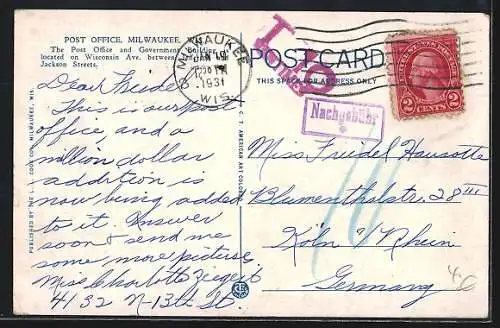 POST OFFICE, MILWAUKEE.
The Post Office and Government Building is
located on Wisconsin Ave. between
Jackson Streets.
Dear Friedel
This is our post
office and a
million dollar
addition is
now being added
to it. Answer
soon & send me
some more pictures.
Miss Charlotte
4132 N-13th St.
PUBLISHED BY THE E. C. KROPP CO., MILWAUKEE, WIS.
C. T. AMERICAN ART COLORED
MILWAUKEE
1931
WIS.
T
POST CARD
THIS SPACE FOR ADDRESS ONLY
UNITED STATES POSTAGE
2 CENTS 2
Nachgebühr
Miss Friedel Hausotte
Blumenthalstr. 28 III
Köln a/Rhein
Germany
10